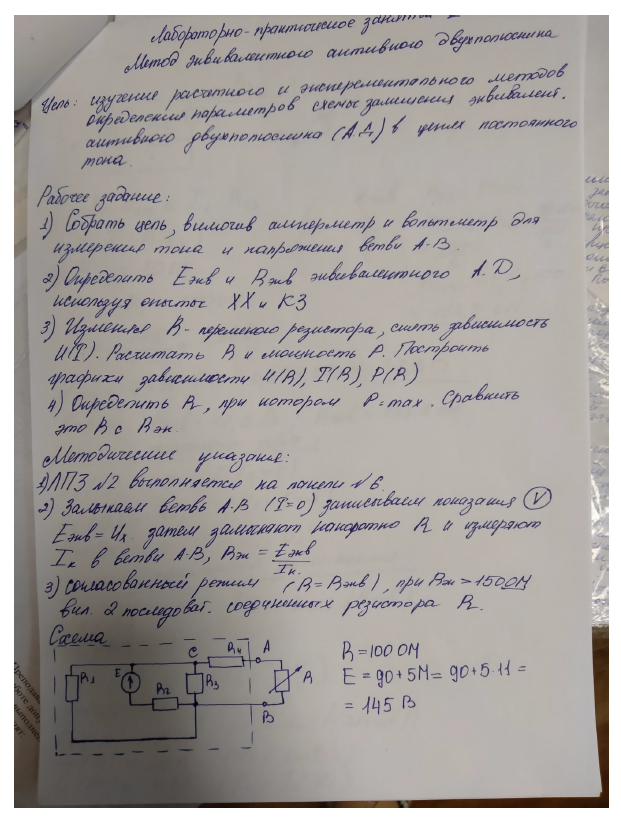 Лабораторно-практическое занятие
Метод эквивалентного активного двухполюсника
Цель: изучение расчетного и эксперементального методов
определения параметров схемы замещения эквивалент.
активного двухполюсника (А.Д) в цепях постоянного
тока.
Рабочее задание:
1) Собрать цепь, включив амперметр и вольтметр для
измерения тока и напряжения ветви А-В.
2) Определить Eэкв и Rэкв эквивалентного А.D,
используя опыты ХХ и КЗ
3) Изменяя R - переменого резистора, снять зависимость
U(I). Расчитать R и мощность P. Построить
графики зависимости U(R), I(R), P(R)
4) Определить R, при котором P=max. Сравнить
это R с Rэк.
Методические указание:
1) ЛПЗ №2 выполняется на панели №6
2) Замыкаем ветвь А-В (I=0) записываем показания V
Eэкв = Uх. затем замыкают накоротко R и измеряют
Iк в ветви А-В, Rэк = Eэкв / Iк.
3) согласованный режим (R=Rэкв), при Rэк>150 ОМ
вкл. 2 последоват. соединенных резистора R.
Схема
C R4 A
R1 E R3 R
R2
B
R=100 ОМ
E = 90+5M= 90+5·11 =
= 145 В